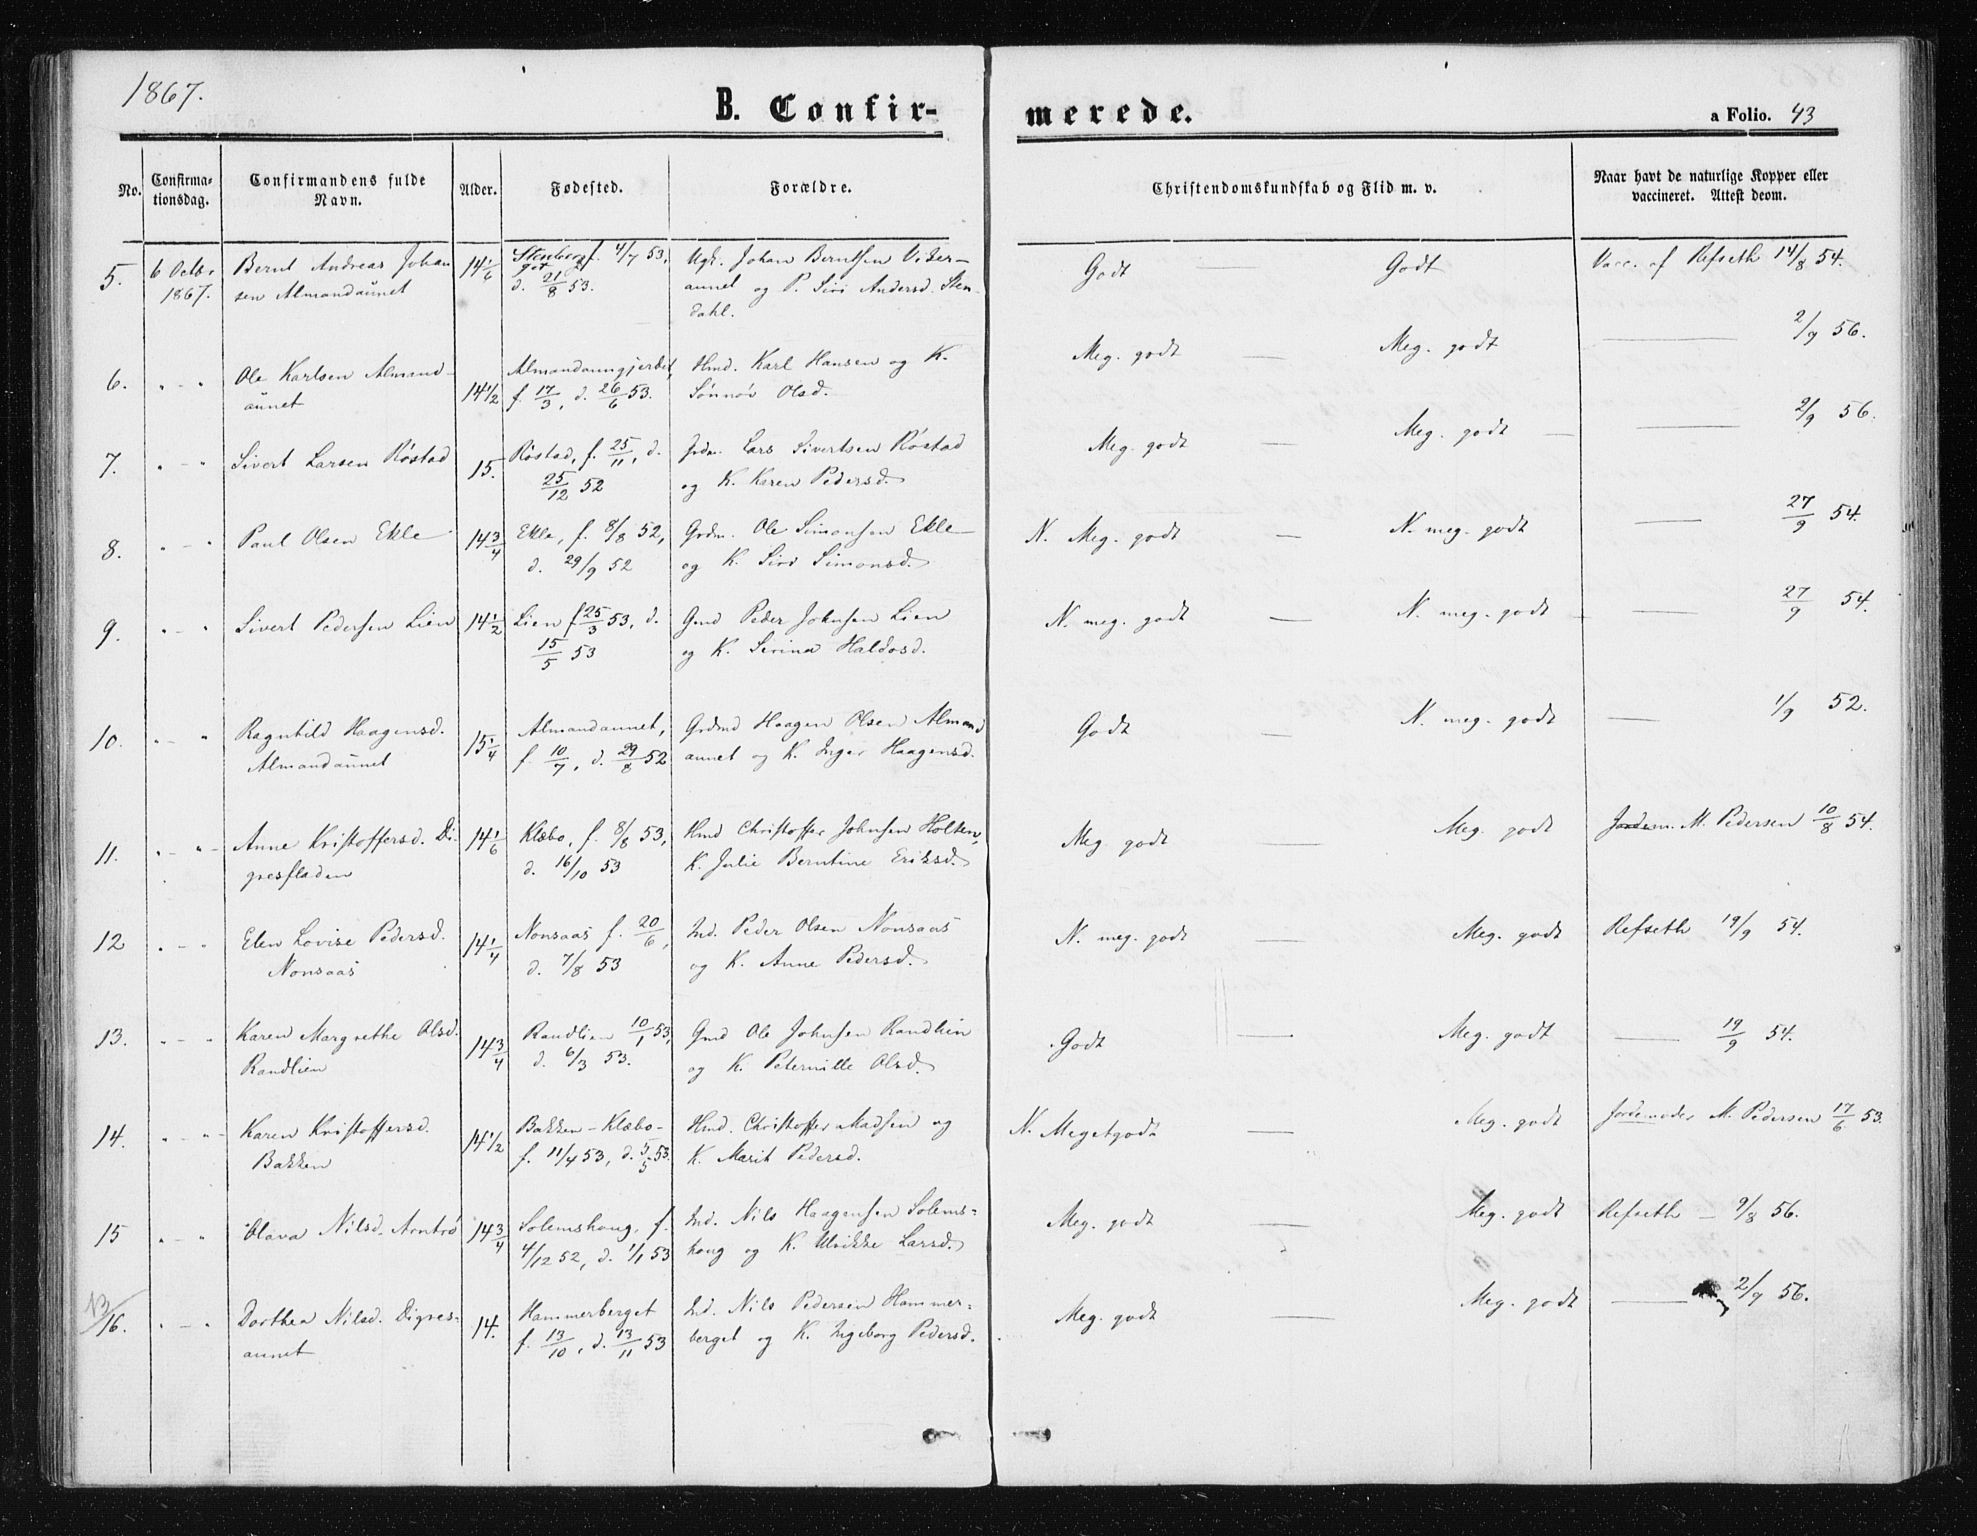 1867.
B. Confir-
merede.
a Folio. 43
No.
Confirma-
tionsdag.
Confirmandens fulde
Navn.
Alder.
Fødested.
Forældre.
Christendomskundskab og Flid m. v.
Naar havt de naturlige Kopper eller
vaccineret. Attest deom.
5. 6 Octbr Bernt Andreas Johan 14 1/6 Stenberg f. 4/7 53, Ugk. Johan Berntsen Viker- Godt — Godt Vacc. af Refseth 14/8 54.
1867. sen Almandaünet d. 21/8 53. aunet og P. Siri Andersd. Sten-
dahl.
6. " - " Ole Karlsen Almand- 14 1/2 Hmd. Karl Hansen og K. Meg. godt — Meg. godt — 2/9 56.
aünet f. 17/3, d. 26/6 53. Sønnøv Olsd.
7. " - " Sivert Larsen Røstad 15. Røstad, f. 25/11, d. Lars Sivertsen Røstad Meg. godt — Meg. godt — 2/9 56.
25/12 52 og K. Karen Pedersd.
8. " - " Paul Olsen Ekle 14 3/4 Ekle, f. 8/8 52, Grdm. Ole Simonsen Ekle N. Meg. godt — N. meg. godt — 27/9 54.
d. 29/9 52 og K. Siri Simonsd.
9. " - " Sivert Pedersen Lien 14 1/2 Lien f. 25/3 53, d. Gmd Peder Johnsen Lien N. meg. godt — N. meg. godt — 27/9 54.
15/5 53 og K. Sirina Haldosd.
10. " - " Ragnhild Haagensd. 15 1/4 Almandaunet, Grdmd Haagen Olsen Almand Godt — N. meg. godt — 1/9 52.
Almandaünet f. 10/7, d. 29/8 52 aunet og K. Inger Haagensd.
11. " - " Anne Kristoffersd. Di- 14 1/6 Klæbo, f. 8/8 53, Hmd Christoffer Johnsen Holten, Meg. godt — Meg. godt M. Pedersen 10/8 54.
gresfladen d. 16/10 53 K. Julie Berntine Eriksd.
12 " - " Elen Lovise Pedersd. 14 1/4 Nonsaas f. 20/6, Ind. Peder Olsen Nonsaas N. meg. godt — Meg. godt Refseth 19/9 54.
Nonsaas d. 7/8 53 og K. Anne Pedersd.
13. " - " Karen Margrethe Olsd. 14 3/4 Randlien 10/1 53, Gmd Ole Johnsen Randlien Godt — Meg. godt — 19/9 54.
Randlien d. 6/3 53. og K. Peternille Olsd.
14. " - " Karen Kristoffersd. 14 1/2 Bakken - Klæbo- Hmd. Christoffer Madsen og N. Megetgodt — Meg. godt Jordemoder M. Pedersen 17/6 53.
Bakken f. 11/4 53, d. 5/5 53. K. Marit Pedersd.
15 " - " Olava Nilsd. Arntrö 14 3/4 Solemshoug, f. Ind. Nils Haagensen Solems- Meg. godt — Meg. godt Refseth — 9/8 56.
4/12 52, d. 1/1 53 houg og K. Ulrikke Larsd.
13/
16. " - " Dorthea Nilsd. Digres- 14. Hammerberget Ind. Nils Pedersen Hammer- Meg. godt Meg. godt — 2/9 56.
aunet f. 13/10, d. 13/11 53 berget og K. Ingeborg Pedersd.